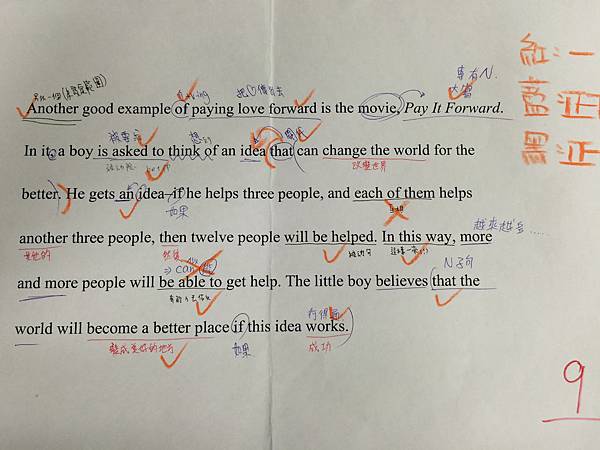 紅:一
藍:正
黑:正
專有N.
Another good example of paying love forward is the movie, Pay It Forward.
被要求
In it, a boy is asked to think of an idea that can change the world for the
改變世界
better. He gets an idea—if he helps three people, and each of them helps
如果
another three people, then twelve people will be helped. In this way, more
其他的
然後
越來越多......
⇒can
N子句
and more people will be able to get help. The little boy believes that the
world will become a better place if this idea works.
變成更好的地方
如果
成功
9